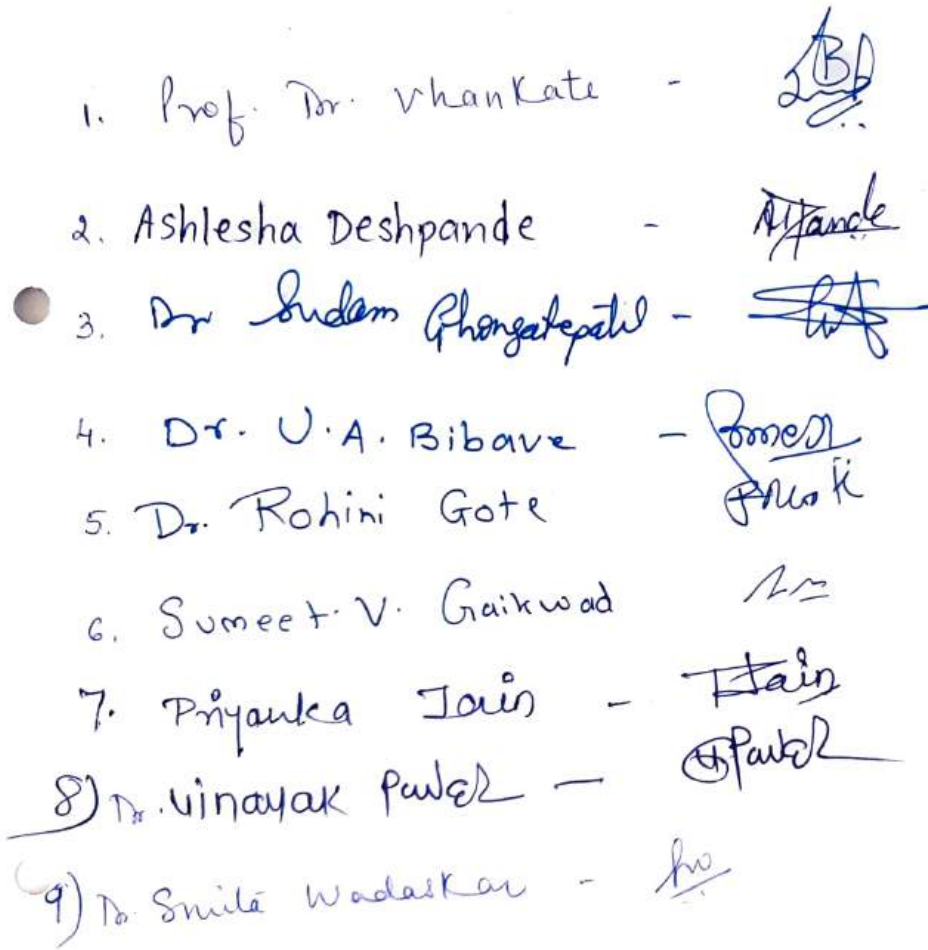 1. Prof. Dr. Vhankate -
2. Ashlesha Deshpande -
3. Dr Sudam Ghongatepatil -
4. Dr. U.A. Bibave -
5. Dr. Rohini Gote
6. Sumeet. V. Gaikwad
7. Priyanka Jain - Jain
8) Dr. Vinayak Pawar -
9) Dr. Smita Wadaskar -